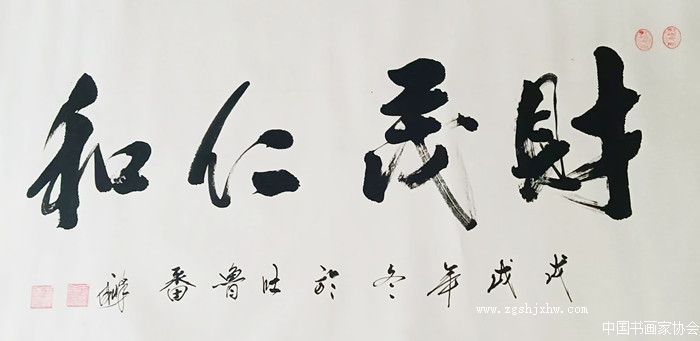 財茂仁和
戊戌年冬於吐魯番
www.zgshjxhw.com
中国书画家协会